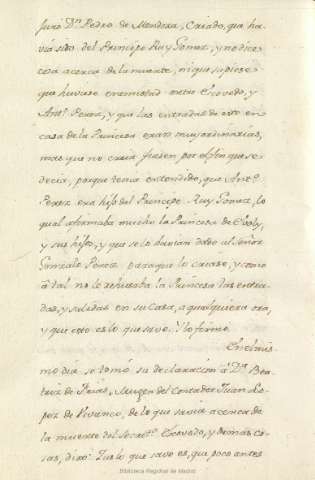 Juró Dn. Pedro de Mendoza, Criado, que ha-
vía sido del Principe Ruy Gomez, y no dice
cosa acerca de la muerte, ni que supiese
que huviese enemistad entre Escovedo, y
Antº. Perez, y que las entradas de este en
casa de la Princesa eran muy ordinarias,
mas que no creia fuesen por el fin que se
decia, porque tenia entendido, que Antº.
Perez era hijo del Principe Ruy Gomez, lo
qual afirmaba mucho la Princesa de Eboly,
y sus hijos, y que se lo havian dado al Señor
Gonzalo Perez para que lo criase, y como
á tal no le rehusaba la Princesa las entra-
das, y salidas en su Casa, a qualquiera ora,
y que esto es lo que save. Y lo firmó.
En el mis-
mo dia se tomó su declaración á Dª. Bea-
triz de Frias, Muger del Contador Juan Lo-
pez de Vivanco, de lo que savia acerca de
la muerte del Secretº. Escovedo, y demas co-
sas, dixo: Que lo que save es, que poco antes
Biblioteca Regional de Madrid